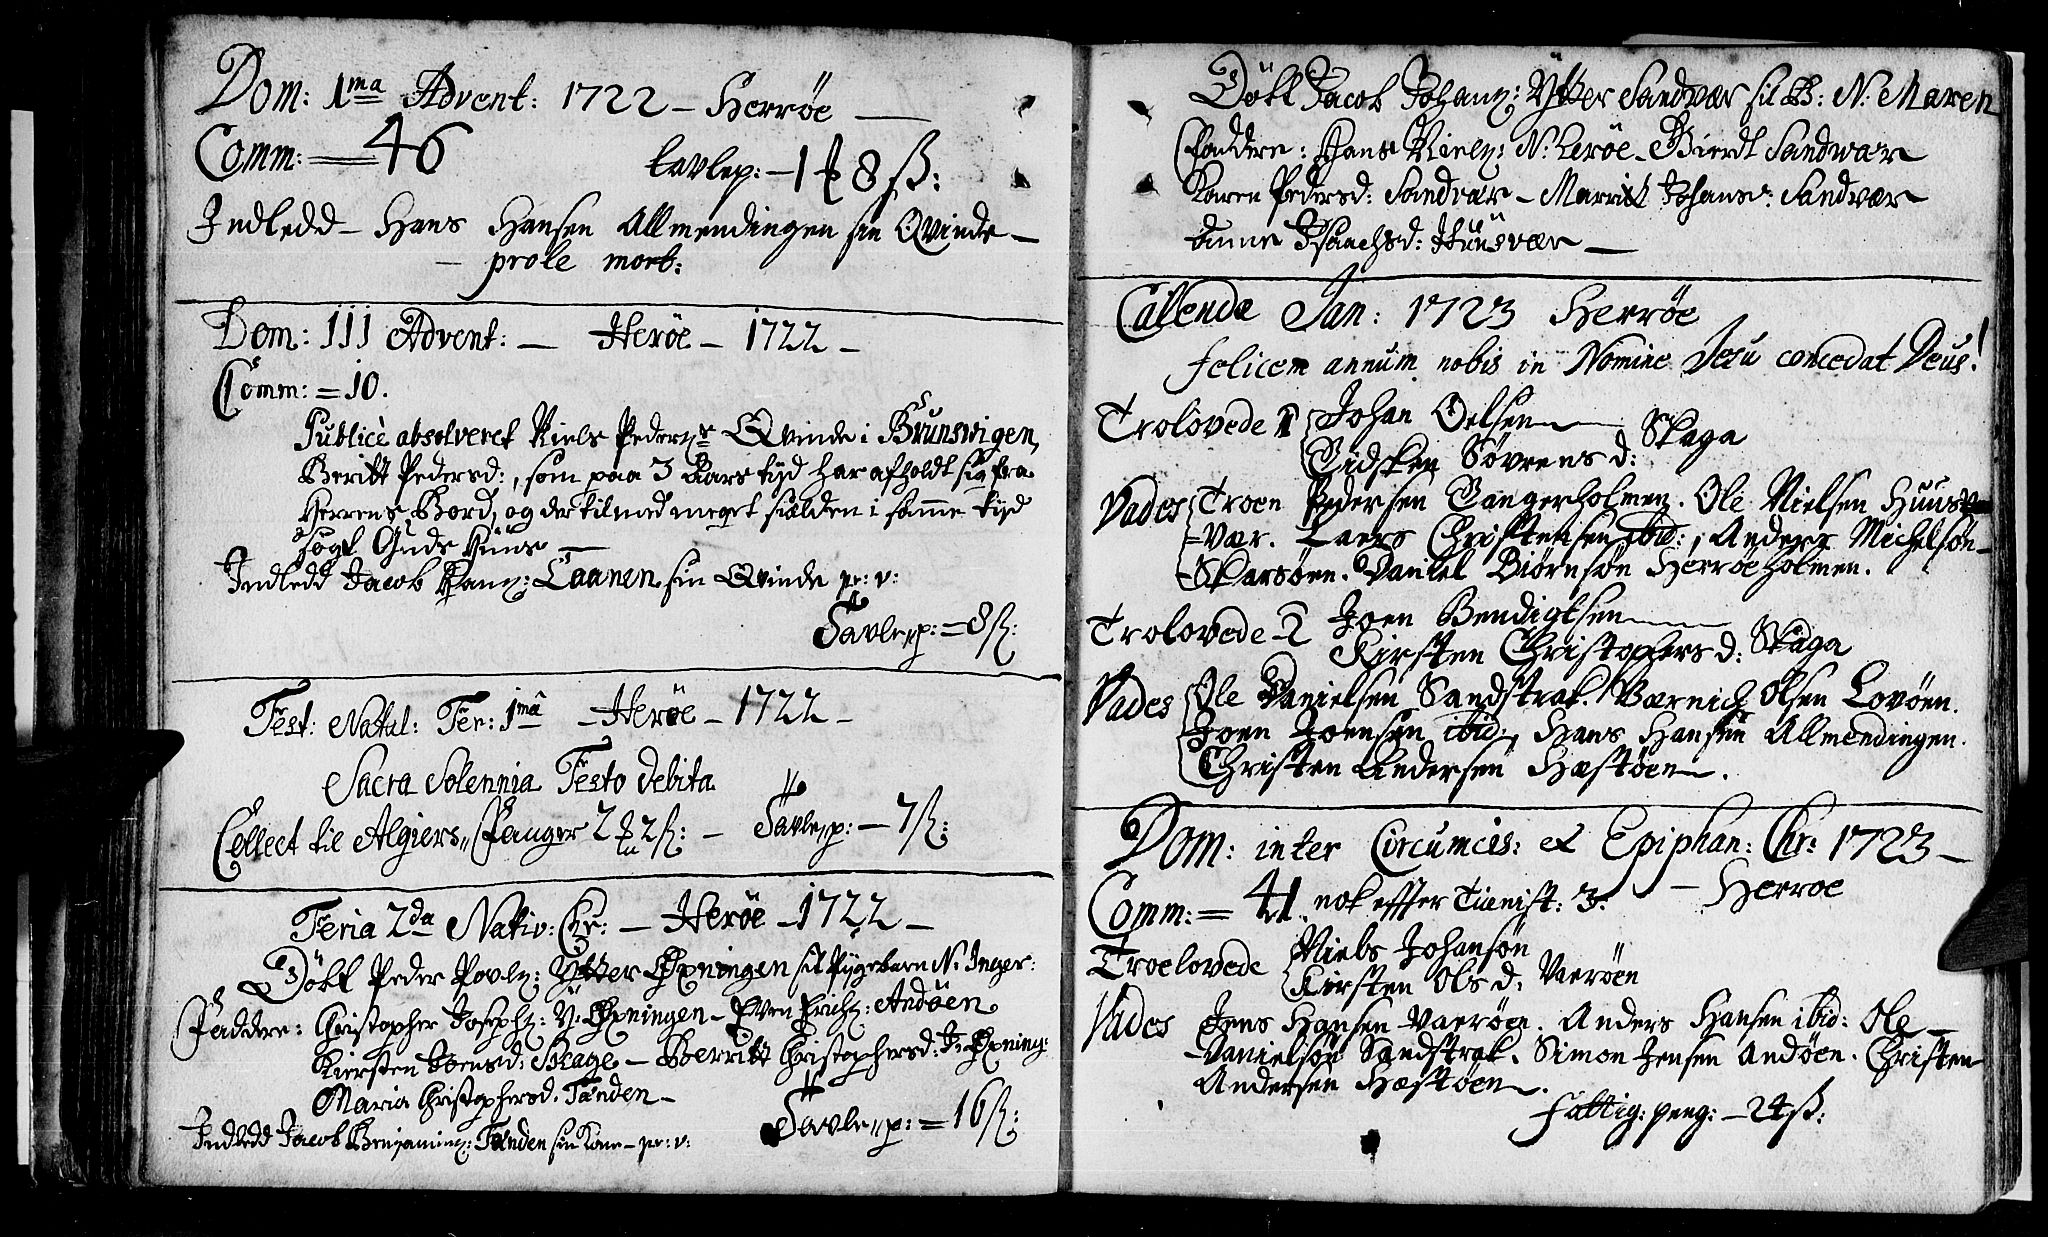 Dom: 1ma Advent: 1722 – Herröe —
Comm: = 46 tavlep: – 1 8 ß:
Indledd – Hans Hansen Allmendingen sin Qvinde –
– prole mort:
Dom: III Advent: – Heröe – 1722 –
Comm: = 10.
Publicè absolveret Niels Peders Qvinde i Brunswigen,
Beritt Pedersd:, som paa 3 Aars tyd har afholdt sig fra
Herrens Bord, og der til med meget sielden i samme tyd
søgt Guds Huus —
Indledd Jacob Hans: Caanen sin Qvinde pr: v:
Tavlep: = 8 ß:
Fest: Natal: Fer: 1mâ – Heröe – 1722 –
Sacra Solennia Festo debita
Collect til Algiers Fanger 2 2 ß: – Tavlep: – 7 ß:
Feria 2da Nativ: Chr: – Heröe – 1722 –
Döbt Peder Povls: Ytter Øxningen sit Pygebarn N. Inger:
Faddere: Christopher Josephs: Y: Øxningen – Even Erichs: Andöen
Kiersten Joensd: Skage – Berritt Christophersd: I: Øxning:
Maria Christophersd. Tenden –
Indledd Jacob Benjamins: Tenden sin Kone – pr: v: Tavlep: = 16 ß:
Döbt Jacob Johans: Ytter Sandvær sit B: N: Maren
Faddere: Hans Niels: N: Heröe – Bierdt Sandvær
Karen Pedersd: Sandvær – Marrit Johansd: Sandvær
Anne Isaachsd: Huusvær —
Calendæ Jan: 1723 Herröe
felicem annum nobis in Nomine Jesu concedat Deus!
Trolovede 1 Johan Oelsen — Skaga
Cidsken Sövrensd:
Vades Troen Pedersen Tangerholmen. Ole Nielsen Huus
=vær. Laers Christensen ibid:, Anders Michelsön
Skarsöen. Daniel Biörnsön Herröeholmen.
Trolovede – 2 Joen Bendigtsen — Skaga
Kirsten Christophersd:
Vades Ole Danielsen Sandstrak. Værnich Olsen Lovöen.
Joen Joensen ibid:, Hans Hansen Allmendingen.
Christen Andersen Hæstöen.
Dom: inter Circumcis: et Epiphan: Chr: 1723 –
Comm: = 41. nok effter Tienist: 3. – Herroe
Troelovede Niels Johansön
Kirsten Olsd. Væröen
Vades Jens Hansen Væröen. Anders Hansen ibid: Ole
Danielsön Sandstrak. Simon Jensen Andöen. Christen
Andersen Hæstöen.
Fattig: peng: – 24 ß: